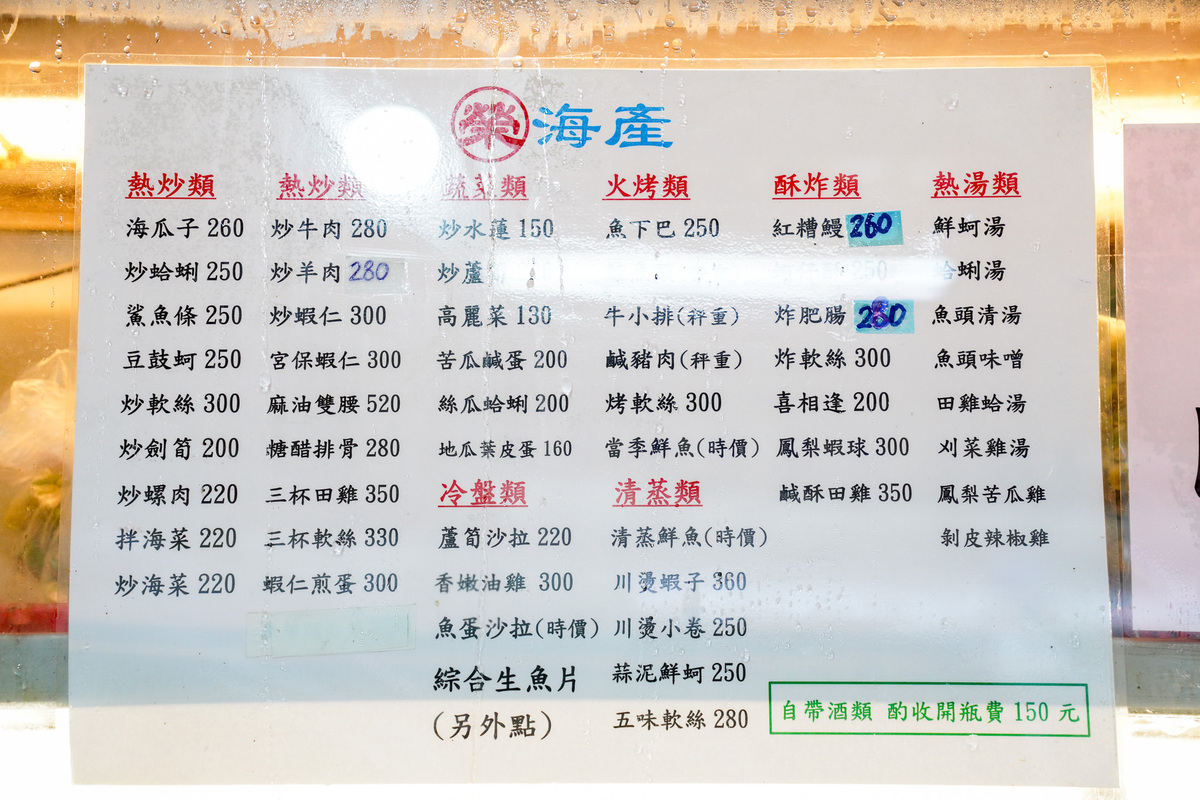 榮 海產
熱炒類
海瓜子 260
炒蛤蜊 250
鯊魚條 250
豆鼓蚵 250
炒軟絲 300
炒劍筍 200
炒螺肉 220
拌海菜 220
炒海菜 220
熱炒類
炒牛肉 280
炒羊肉 280
炒蝦仁 300
宮保蝦仁 300
麻油雙腰 520
糖醋排骨 280
三杯田雞 350
三杯軟絲 330
蝦仁煎蛋 300
蔬菜類
炒水蓮 150
炒蘆
高麗菜 130
苦瓜鹹蛋 200
絲瓜蛤蜊 200
地瓜葉皮蛋 160
冷盤類
蘆筍沙拉 220
香嫩油雞 300
魚蛋沙拉(時價)
綜合生魚片
(另外點)
火烤類
魚下巴 250
牛小排(秤重)
鹹豬肉(秤重)
烤軟絲 300
當季鮮魚(時價)
清蒸類
清蒸鮮魚(時價)
川燙蝦子 360
川燙小卷 250
蒜泥鮮蚵 250
五味軟絲 280
酥炸類
紅糟鰻 260
250
炸肥腸
炸軟絲 300
喜相逢 200
鳳梨蝦球 300
鹹酥田雞 350
熱湯類
鮮蚵湯
蛤蜊湯
魚頭清湯
魚頭味噌
田雞蛤湯
刈菜雞湯
鳳梨苦瓜雞
剝皮辣椒雞
自帶酒類 酌收開瓶費 150 元